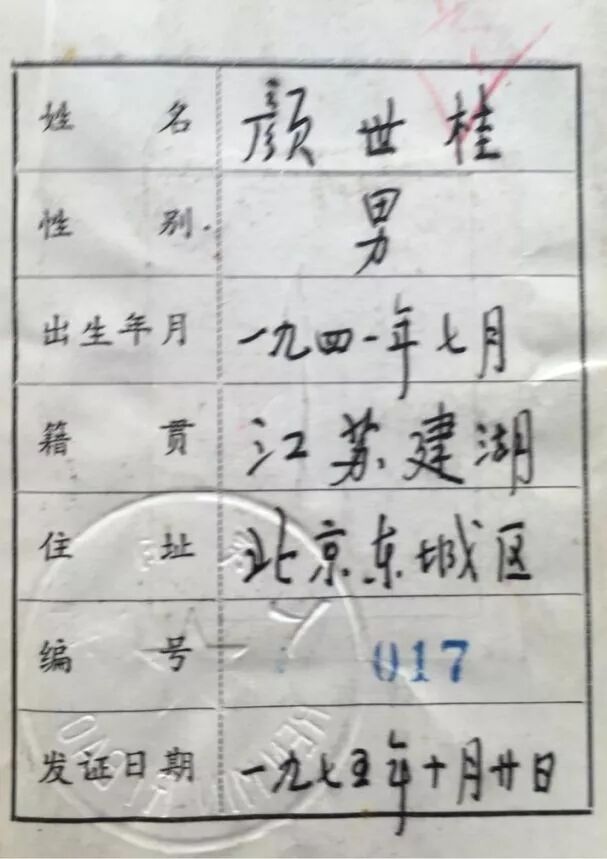 姓名 颜世桂
性别 男
出生年月 一九四一年七月
籍贯 江苏建湖
住址 北京东城区
编号 017
发证日期 一九七五年十月廿日